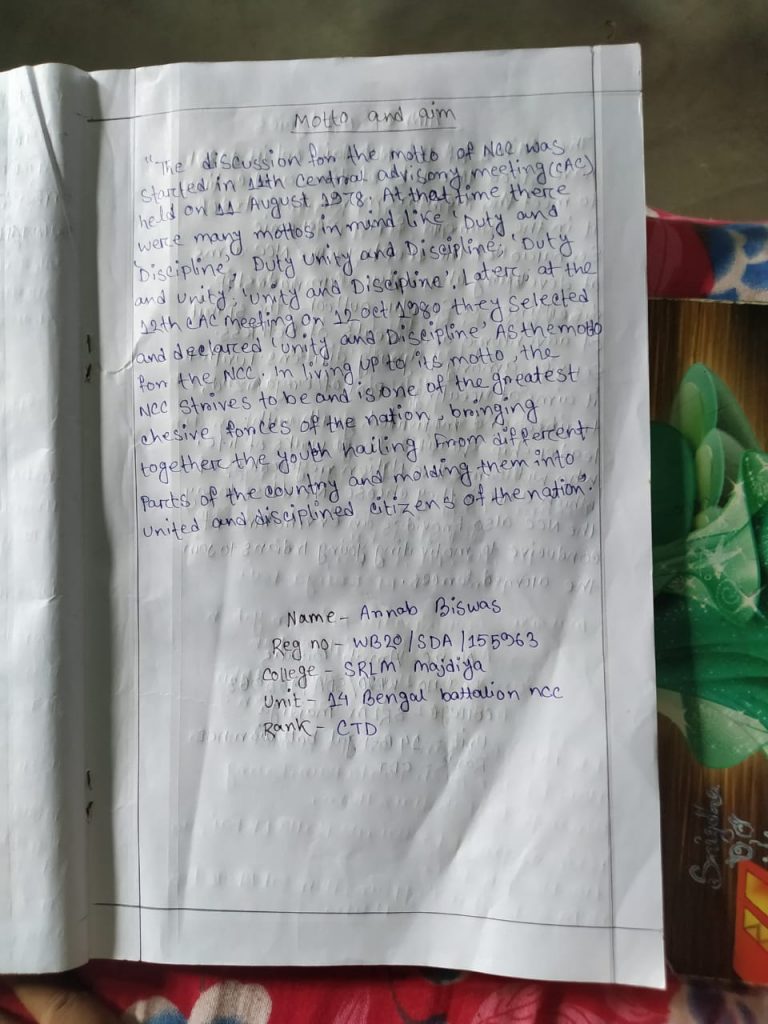 Motto and aim
"The discussion for the motto of NCC was
started in 11th central advisory meeting (CAC)
held on 11 August 1978. At that time there
were many mottos in mind like 'Duty and
Discipline', Duty Unity and Discipline; 'Duty
and Unity; 'Unity and Discipline'. Later, at the
12th CAC meeting on 12 oct 1980 they selected
and declared 'Unity and Discipline' As the motto
for the NCC. In living up to its motto, the
NCC strives to be and is one of the greatest
chesive forces of the nation, bringing
together the youth hailing From different
Parts of the country and molding them into
united and disciplined citizens of the nation".
Name - Annab Biswas
Reg no - WB20/SDA/155963
College - SRLM majdiya
Unit - 14 Bengal battalion ncc
Rank - CTD